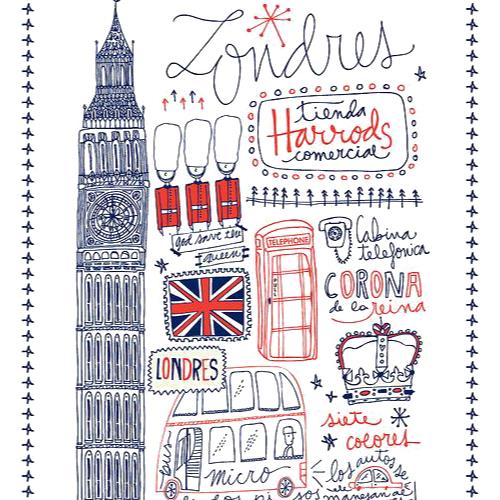 Londres
tienda
Harrods
comercial
god save the
queen
TELEPHONE
Cabina
telefonica
CORONA
de la reina
LONDRES
siete
colores
bus
micro
los autos se
manejan